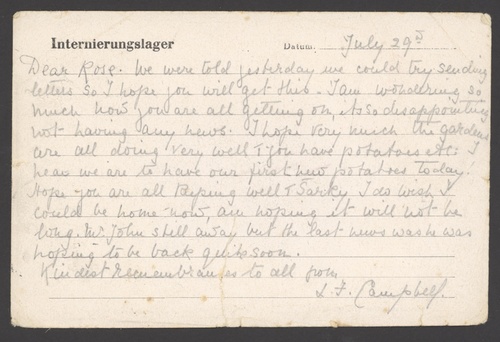 Internierungslager Datum: July 29
Dear Rose. We were told yesterday we could try sending
letters so I hope you will get this. I am wondering so
much how you are all getting on, its so disappointing
not having any news. I hope very much the gardens
are all doing very well & you have potatoes etc: I
hear we are to have our first new potatoes today.
Hope you are all keeping well & Sarky I do wish I
could be home now, am hoping it will not be
long. Mr. John still away but the last news was he was
hoping to be back quite soon.
Kindest Remembrances to all from
L F. Campbell.